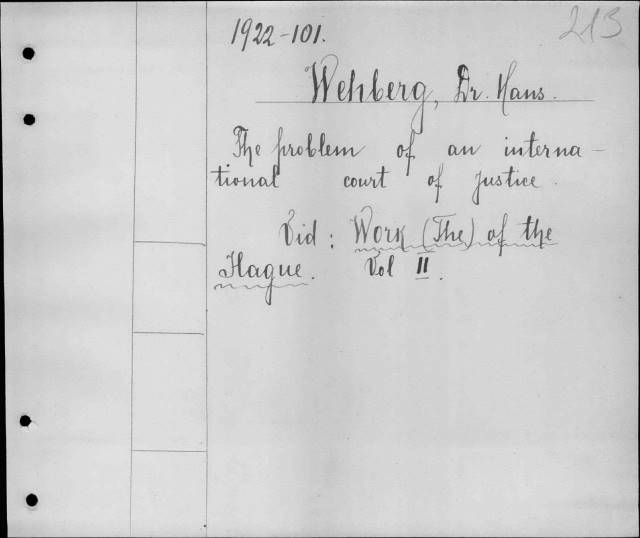 213
1922-101.
Wehberg, Dr. Hans.
The problem of an interna-
tional court of justice.
Vid: Work (The) of the
Hague. Vol II.